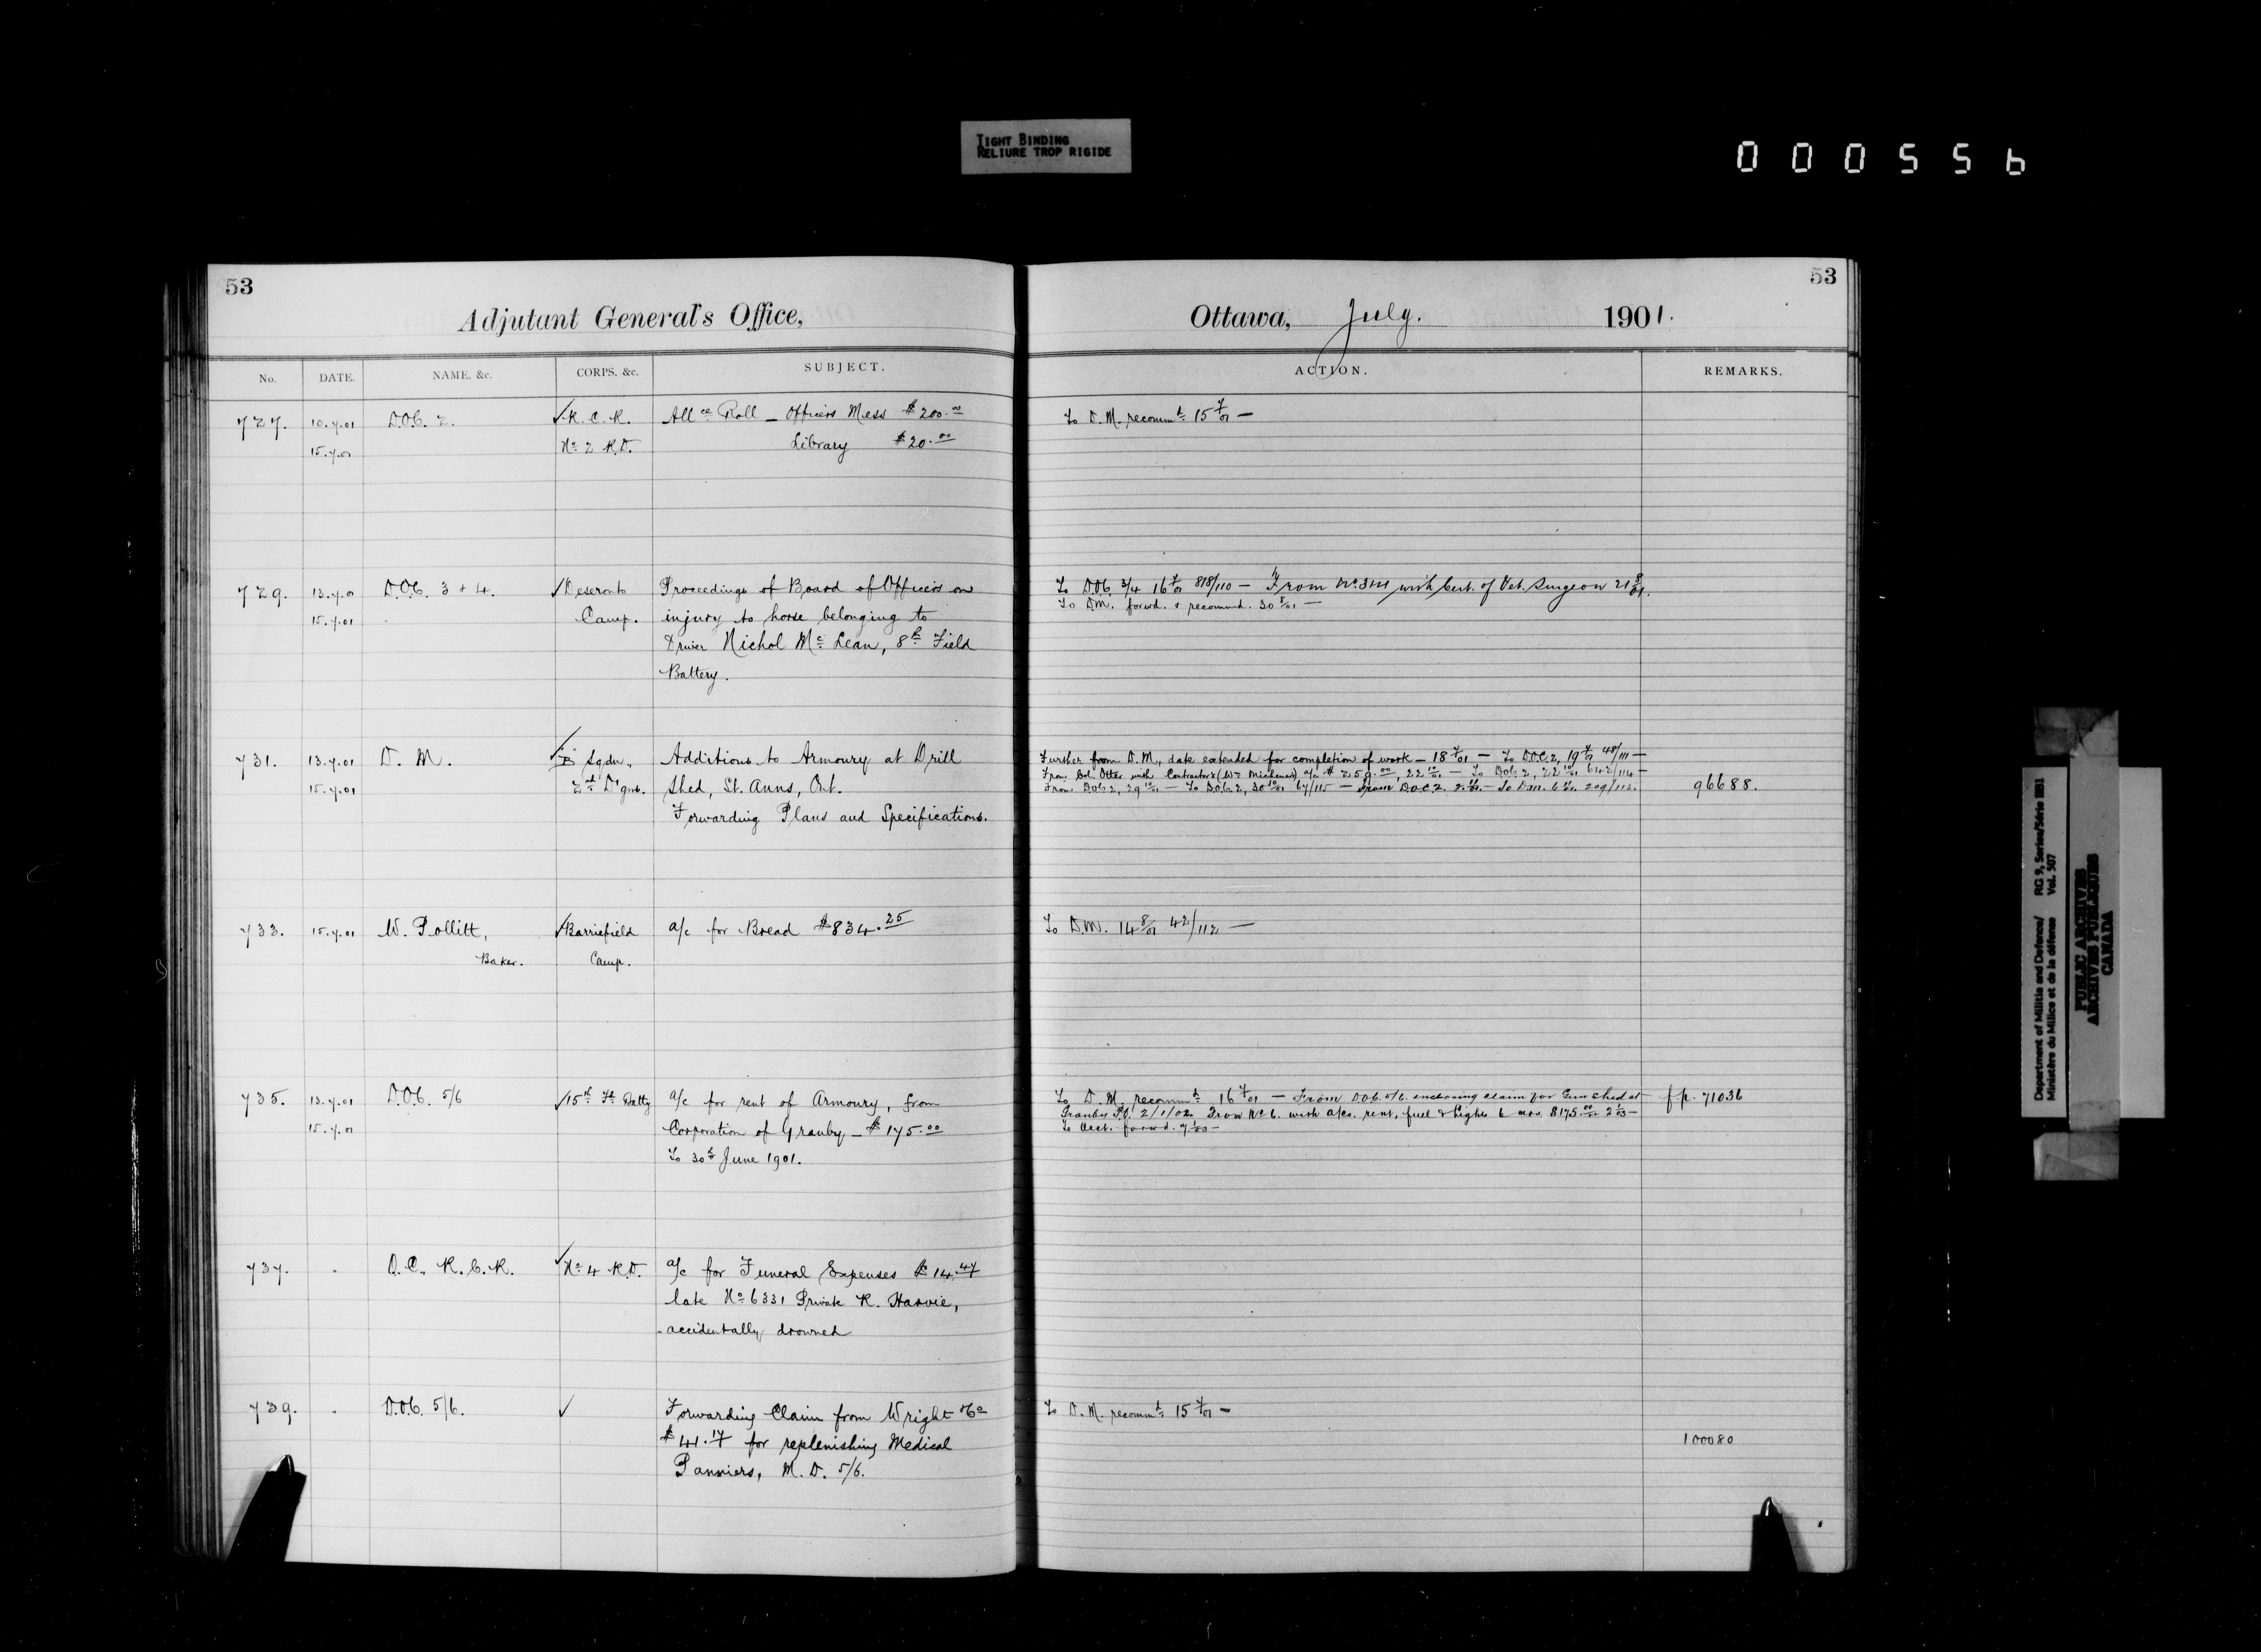 TIGHT BINDING
RELIURE TROP RIGIDE
000556
53
Adjutant General's Office,
No. DATE. NAME, &c. CORPS, &c. SUBJECT.
727. 10.7.01 D.O.C. 2. ✓R.C.R. Allce Roll — Officers Mess $200.00
15.7.01 No 2 R.D. Library $20.00
729. 13.7.01 D.O.C. 3 + 4. ✓Deseronto Proceedings of Board of Officers on
15.7.01 Camp. injury to horse belonging to
Driver Nichol Mc Lean, 8th Field
Battery.
731. 13.7.01 D. M. ✓"B" Sqdn. Additions to Armoury at Drill
15.7.01 2nd D'gns. Shed, St. Anns, Ont.
Forwarding Plans and Specifications.
733. 15.7.01 W. Pollitt, ✓Barriefield a/c for Bread $834.25
Baker. Camp.
735. 13.7.01 D.O.C. 5/6 ✓15th Fd Batty a/c for rent of Armoury, from
15.7.01 Corporation of Granby — $175.00
To 30th June 1901.
737. " O.C., R.C.R. ✓No 4 R.D. a/c for Funeral Expenses $14.47
late No 6331 Private R. Harvie,
accidentally drowned
739. " D.O.C. 5/6. ✓ Forwarding Claim from Wright & Co
$41.17 for replenishing Medical
Panniers, M. D. 5/6.
53
Ottawa, July. 1901.
ACTION. REMARKS.
To D. M. recommd 15 7/01 —
To D.O.C. 3/4 16 7/01 818/110 — From No. 3 & 4 with Cert. of Vet. Surgeon 21 8/01.
To D.M. forwd. & recommd. 30 8/01 —
Further from D. M., date extended for completion of work — 18 7/01 — To D.O.C. 2, 19 7/01 48/111 —
From Col. Otter with Contractor's (Wm ) a/c $259.00, 22 10/01 — To D.O.C. 2, 22 10/01 642/114 —
From D.O.C. 2, 29 10/01 — To D.O.C. 2, 30 10/01 67/115 — From D.O.C. 2. — To D.M. 209/115. 96688.
To D.M. 14 8/01 42/112 —
To D. M. recommd 16 7/01 — From D.O.C. 5/6. enclosing claim for Gun Shed at fp. 71036
Granby P.Q. 2/1/02. From No 6. with a/cs. rent, fuel & lights 6 mos. $175.00 2 1/03 —
To Acct. forwd. 7 1/03 —
To D. M. recommd 15 7/01 —
100080
Department of Militia and Defence/ RG 9, Series/Série IIB1
Ministère du Milice et de la défense Vol. 507
PUBLIC ARCHIVES
ARCHIVES PUBLIQUES
CANADA